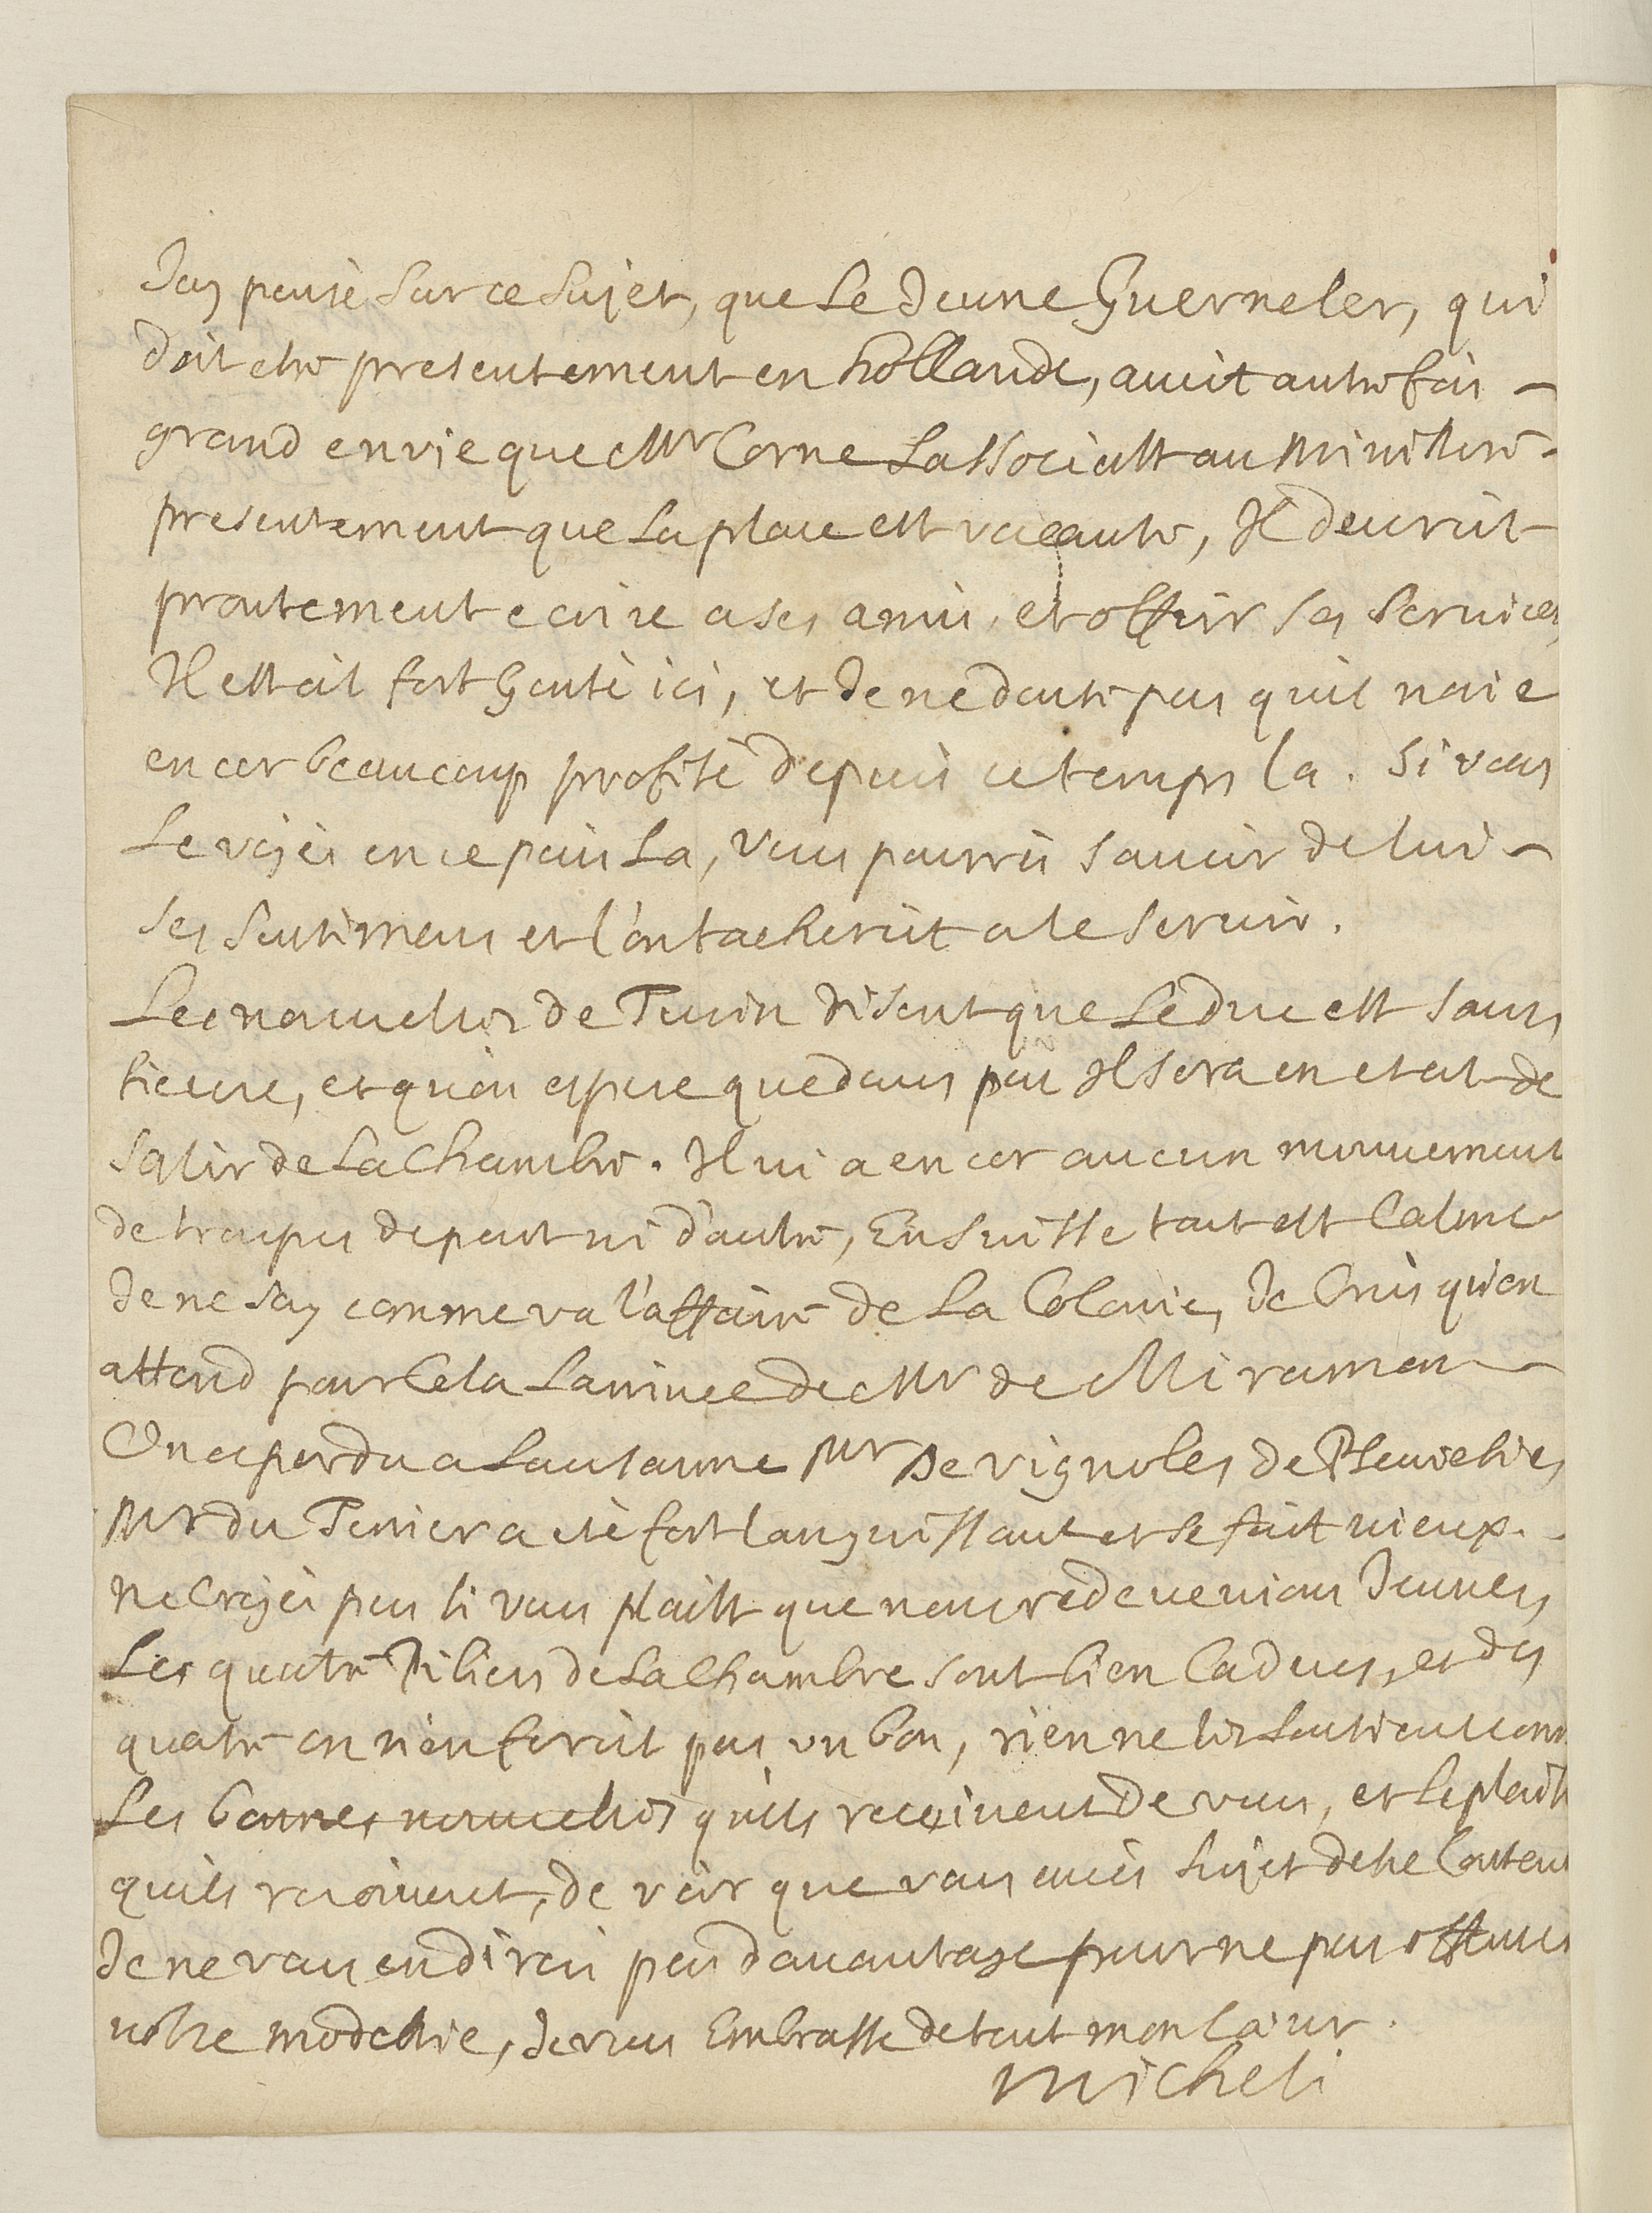 Jay pensé sur ce sujet, que le Jeune Guerneler, qui
doit etre presentement en hollande, avoit autrefois
grand envie que Mr Corne Lassociast au Ministere
presentement que la place est vacante, Il devroit
prontement ecrire a ses amis, et offrir ses services,
Il estoit fort Gouté ici, et Je ne doute pas quil naie
encor beaucoup profité depuis ce temps la. Si vous
Le voyés en ce pais La, vous pourrés savoir de lui
ses sentimens et l'on tacheroit a le servir.
Les nouvelles de Turin disent que Le duc est sans
fievre, et quon espere que dans peu Il sera en etat de
sortir de La Chambre. Il ni a encor aucun mouvement
de troupes de part ni d'autre, En Suisse tout est Calme
Je ne say comme va l'affaire de La Colonie, Je Crois qu'on
attend pour Cela Larrivee de Mr de Miramon
On a perdu a Lausanne Mr De vignoles de
Mr du Terrier a eté fort languissant et se fait vieux.
Ne Croyés pas si vous plaist que nous redevenions Jeunes,
Les quatre Piliers de La Chambre sont bien Caducs, et des
quatre on n'en feroit pas un bon, rien ne les soutient
Les bonnes nouvelles qu'ils recoivent de vous, et le
quils recoivent, de voir que vous aviés sujet detre Content
Je ne vous en dirai pas davantage pour ne pas
votre modestie, Je vous Embrasse de tout mon Coeur.
Micheli